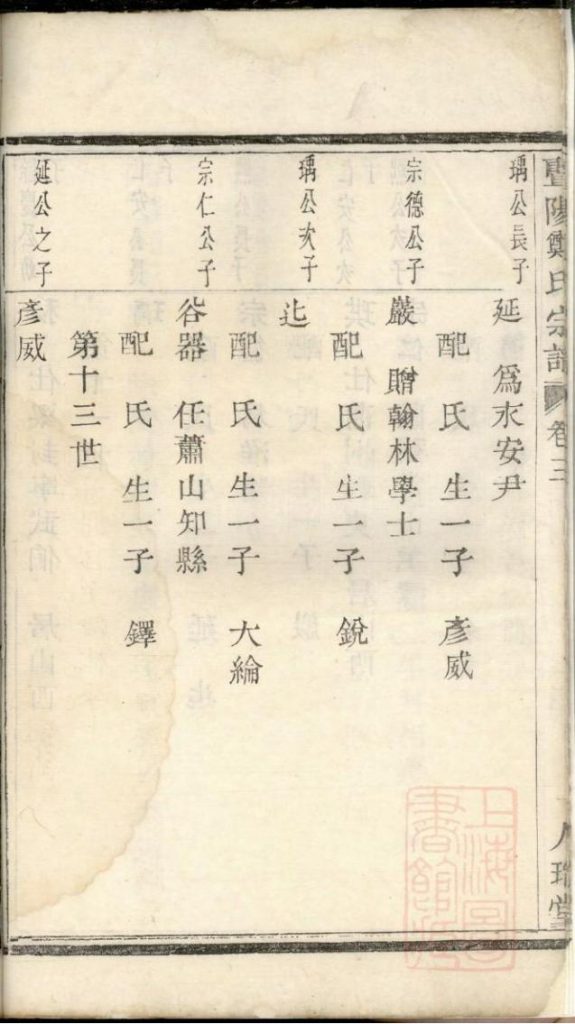 暨陽鄭氏宗譜 卷三 人瑞堂
瑀公長子
延 爲永安尹
配 氏 生一子 彥威
宗德公子
嚴 贈翰林學士
配 氏 生一子 銳
瑀公次子
辵
配 氏 生一子 大綸
宗仁公子
谷器 任蕭山知縣
配 氏 生一子 鐸
第十三世
延公之子
彥威
上海圖書館藏